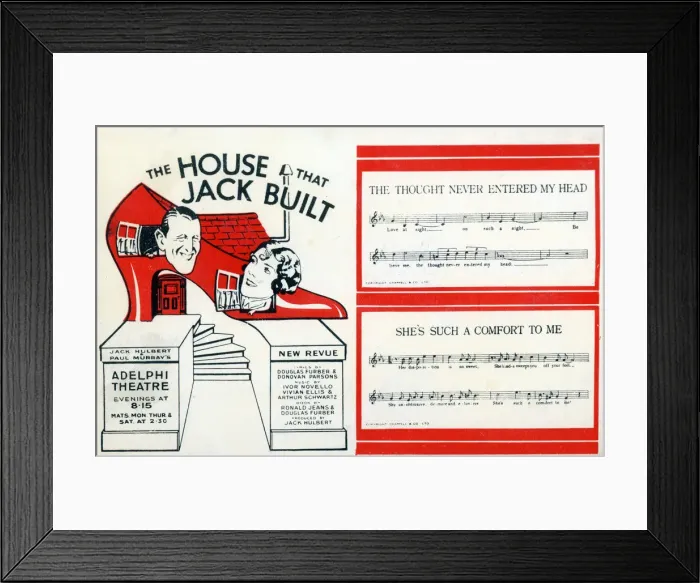 THE HOUSE THAT
JACK BUILT
JACK HULBERT
&
PAUL MURRAY'S
ADELPHI
THEATRE
EVENINGS AT
8·15
MATS. MON. THUR &
SAT. AT 2·30
NEW REVUE
LYRICS BY
DOUGLAS FURBER &
DONOVAN PARSONS
MUSIC BY
IVOR NOVELLO
VIVIAN ELLIS &
ARTHUR SCHWARTZ
BOOK BY
RONALD JEANS &
DOUGLAS FURBER
PRODUCED BY
JACK HULBERT
THE THOUGHT NEVER ENTERED MY HEAD
Love at sight on such a night Be
love me, the thought never entered my head
COPYRIGHT CHAPPELL & CO. LTD.
SHE'S SUCH A COMFORT TO ME
Her disposition is so sweet, She's
She's such a comfort to me!
COPYRIGHT CHAPPELL & CO. LTD.